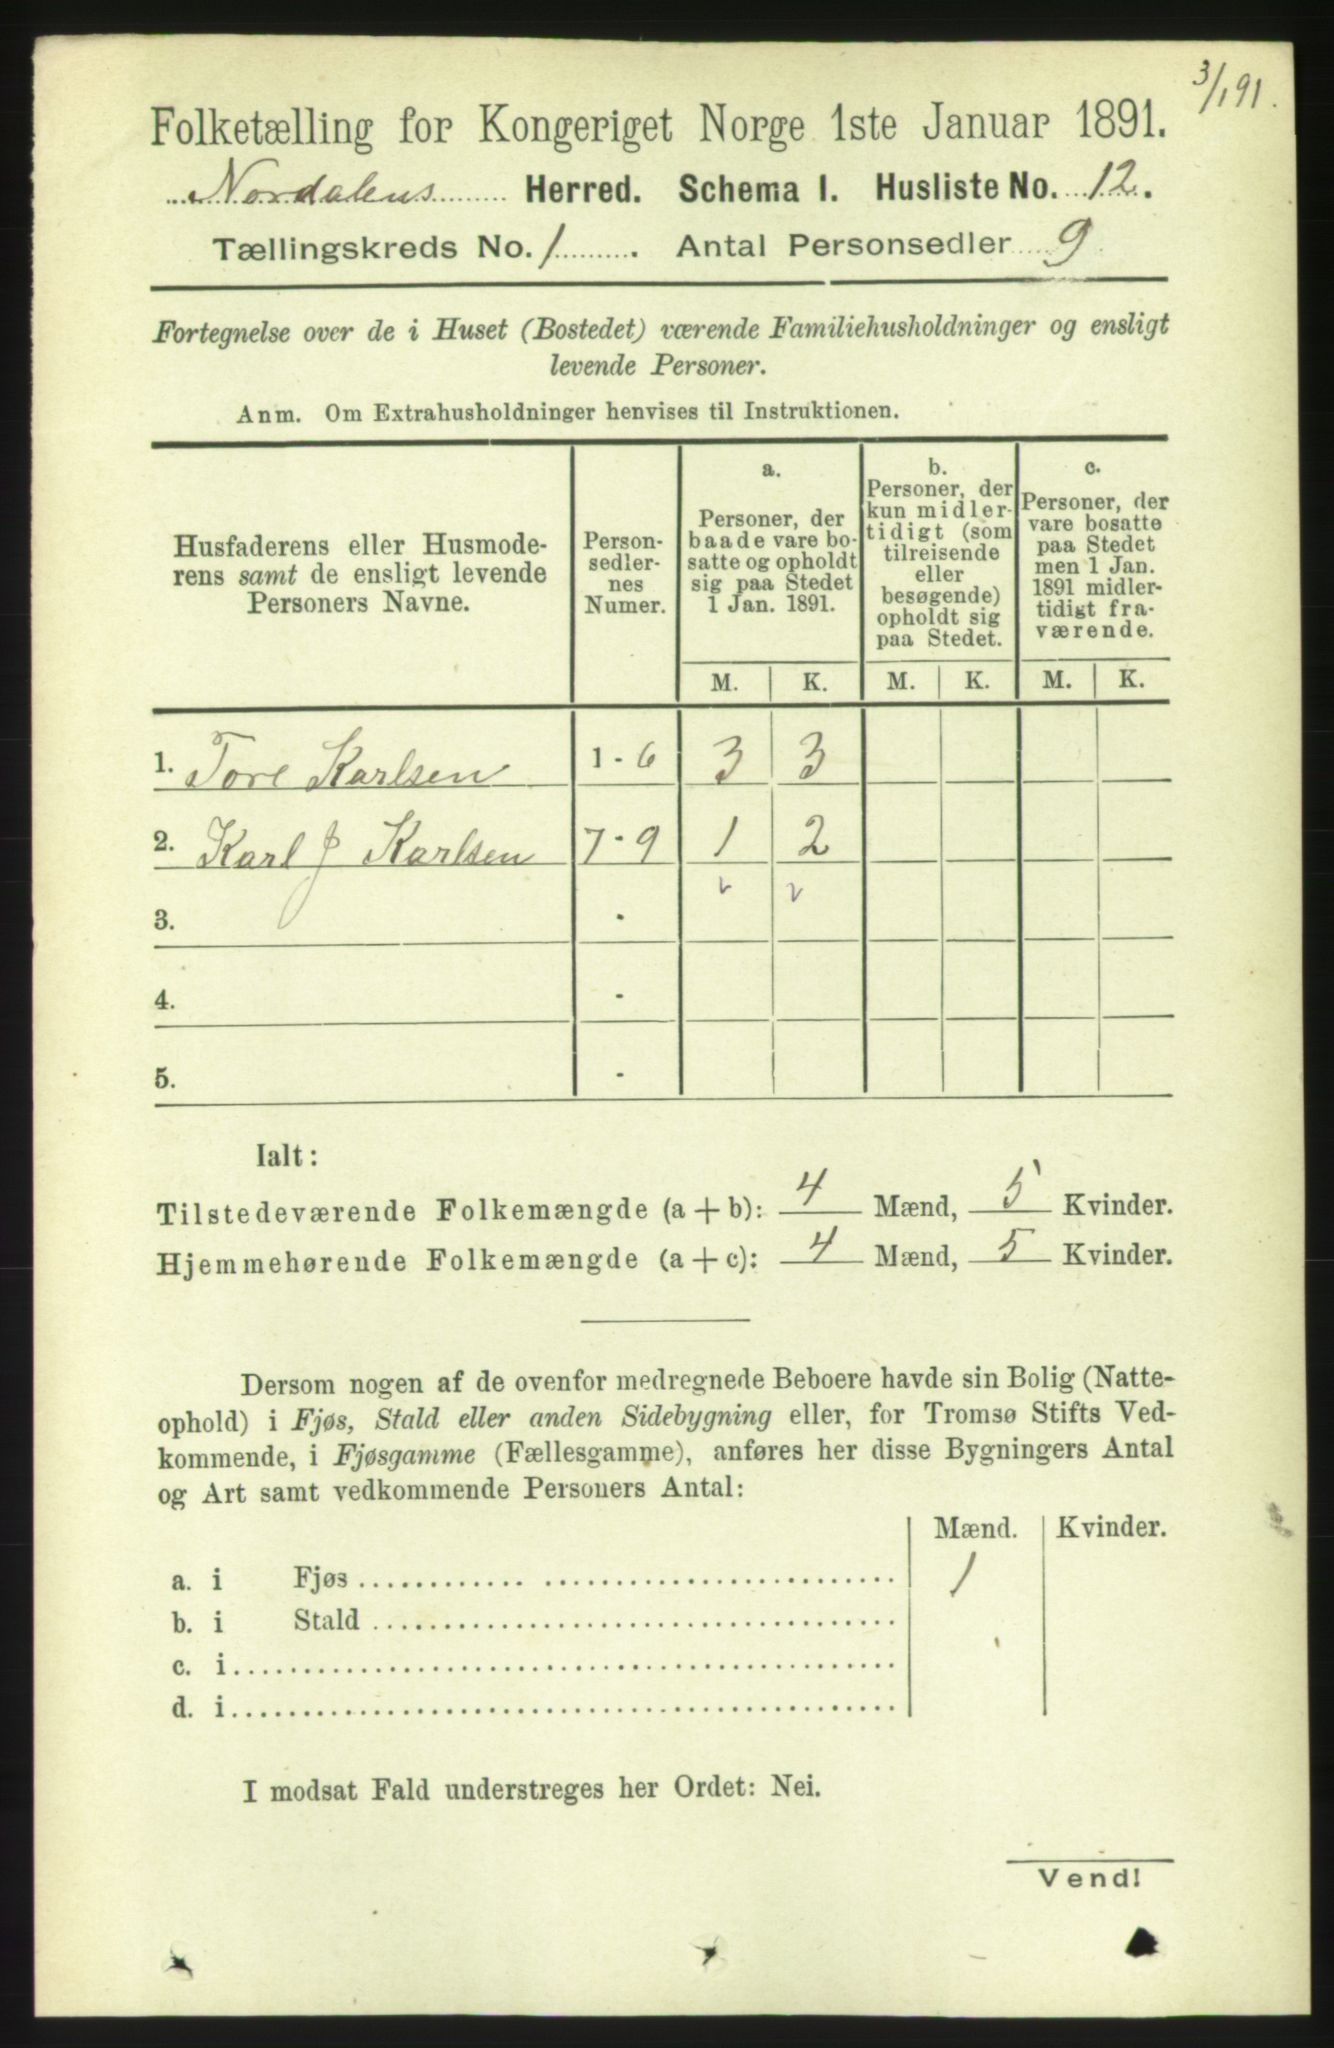 3/1 91.
Folketælling for Kongeriget Norge 1ste Januar 1891.
Nordalens Herred. Schema I. Husliste No. 12.
Tællingskreds No. 1. Antal Personsedler 9
Fortegnelse over de i Huset (Bostedet) værende Familiehusholdninger og ensligt
levende Personer.
Anm. Om Extrahusholdninger henvises til Instruktionen.
Husfaderens eller Husmode-
rens samt de ensligt levende
Personers Navne.
Person-
sedler-
nes
Numer.
a.
Personer, der
baade vare bo-
satte og opholdt
sig paa Stedet
1 Jan. 1891.
b.
Personer, der
kun midler-
tidigt (som
tilreisende
eller
besøgende)
opholdt sig
paa Stedet.
c.
Personer, der
vare bosatte
paa Stedet
men 1 Jan.
1891 midler-
tidigt fra-
værende.
M. K. M. K. M. K.
1. Tore Karlsen 1 - 6 3 3
2. Karl J Karlsen 7 - 9 1 2
3. -
4. -
5. -
Ialt:
Tilstedeværende Folkemængde (a + b): 4 Mænd, 5 Kvinder.
Hjemmehørende Folkemængde (a + c): 4 Mænd, 5 Kvinder.
Dersom nogen af de ovenfor medregnede Beboere havde sin Bolig (Natte-
ophold) i Fjøs, Stald eller anden Sidebygning eller, for Tromsø Stifts Ved-
kommende, i Fjøsgamme (Fællesgamme), anføres her disse Bygningers Antal
og Art samt vedkommende Personers Antal:
Mænd. Kvinder.
a. i Fjøs 1
b. i Stald
c. i
d. i
I modsat Fald understreges her Ordet: Nei.
Vend!